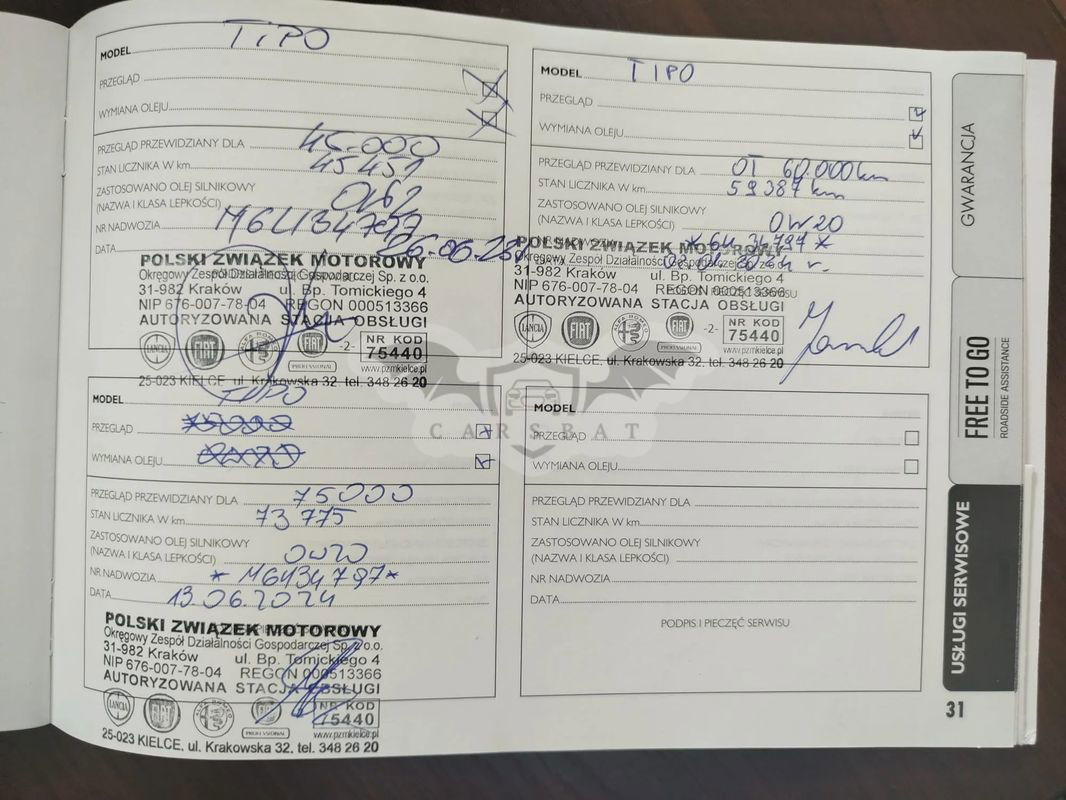 MODEL TIPO
PRZEGLĄD
WYMIANA OLEJU
PRZEGLĄD PRZEWIDZIANY DLA 45.000
STAN LICZNIKA W km 45451
ZASTOSOWANO OLEJ SILNIKOWY
(NAZWA I KLASA LEPKOŚCI)
NR NADWOZIA
DATA
POLSKI ZWIĄZEK MOTOROWY
Okręgowy Zespół Działalności Gospodarczej Sp. z o.o.
31-982 Kraków ul. Bp. Tomickiego 4
NIP 676-007-78-04 REGON 000513366
AUTORYZOWANA STACJA OBSŁUGI
LANCIA FIAT ALFA ROMEO FIAT PROFESSIONAL -2- NR KOD 75440
www.pzmkielce.pl
25-023 KIELCE, ul. Krakowska 32, tel. 348 26 20
MODEL TIPO
PRZEGLĄD
WYMIANA OLEJU
PRZEGLĄD PRZEWIDZIANY DLA OT 60.000 km
STAN LICZNIKA W km 59387 km
ZASTOSOWANO OLEJ SILNIKOWY
(NAZWA I KLASA LEPKOŚCI) 0W20
NR NADWOZIA
POLSKI ZWIĄZEK MOTOROWY
Okręgowy Zespół Działalności Gospodarczej
31-982 Kraków ul. Bp. Tomickiego 4
NIP 676-007-78-04 REGON 000513366
AUTORYZOWANA STACJA OBSŁUGI
LANCIA FIAT ALFA ROMEO FIAT PROFESSIONAL -2- NR KOD 75440
www.pzmkielce.pl
25-023 KIELCE, ul. Krakowska 32, tel. 348 26 20
MODEL TIPO
PRZEGLĄD
WYMIANA OLEJU
PRZEGLĄD PRZEWIDZIANY DLA 75000
STAN LICZNIKA W km 73775
ZASTOSOWANO OLEJ SILNIKOWY
(NAZWA I KLASA LEPKOŚCI) 0W20
NR NADWOZIA *M6U34797*
DATA 13.06.2024
POLSKI ZWIĄZEK MOTOROWY
Okręgowy Zespół Działalności Gospodarczej Sp. z o.o.
31-982 Kraków ul. Bp. Tomickiego 4
NIP 676-007-78-04 REGON 000513366
AUTORYZOWANA STACJA OBSŁUGI
LANCIA FIAT ALFA ROMEO PROFESSIONAL NR KOD 75440
www.pzmkielce.pl
25-023 KIELCE, ul. Krakowska 32, tel. 348 26 20
MODEL
PRZEGLĄD
WYMIANA OLEJU
PRZEGLĄD PRZEWIDZIANY DLA
STAN LICZNIKA W km
ZASTOSOWANO OLEJ SILNIKOWY
(NAZWA I KLASA LEPKOŚCI)
NR NADWOZIA
DATA
PODPIS I PIECZĘĆ SERWISU
CARSBAT
GWARANCJA
FREE TO GO
ROADSIDE ASSISTANCE
USŁUGI SERWISOWE
31